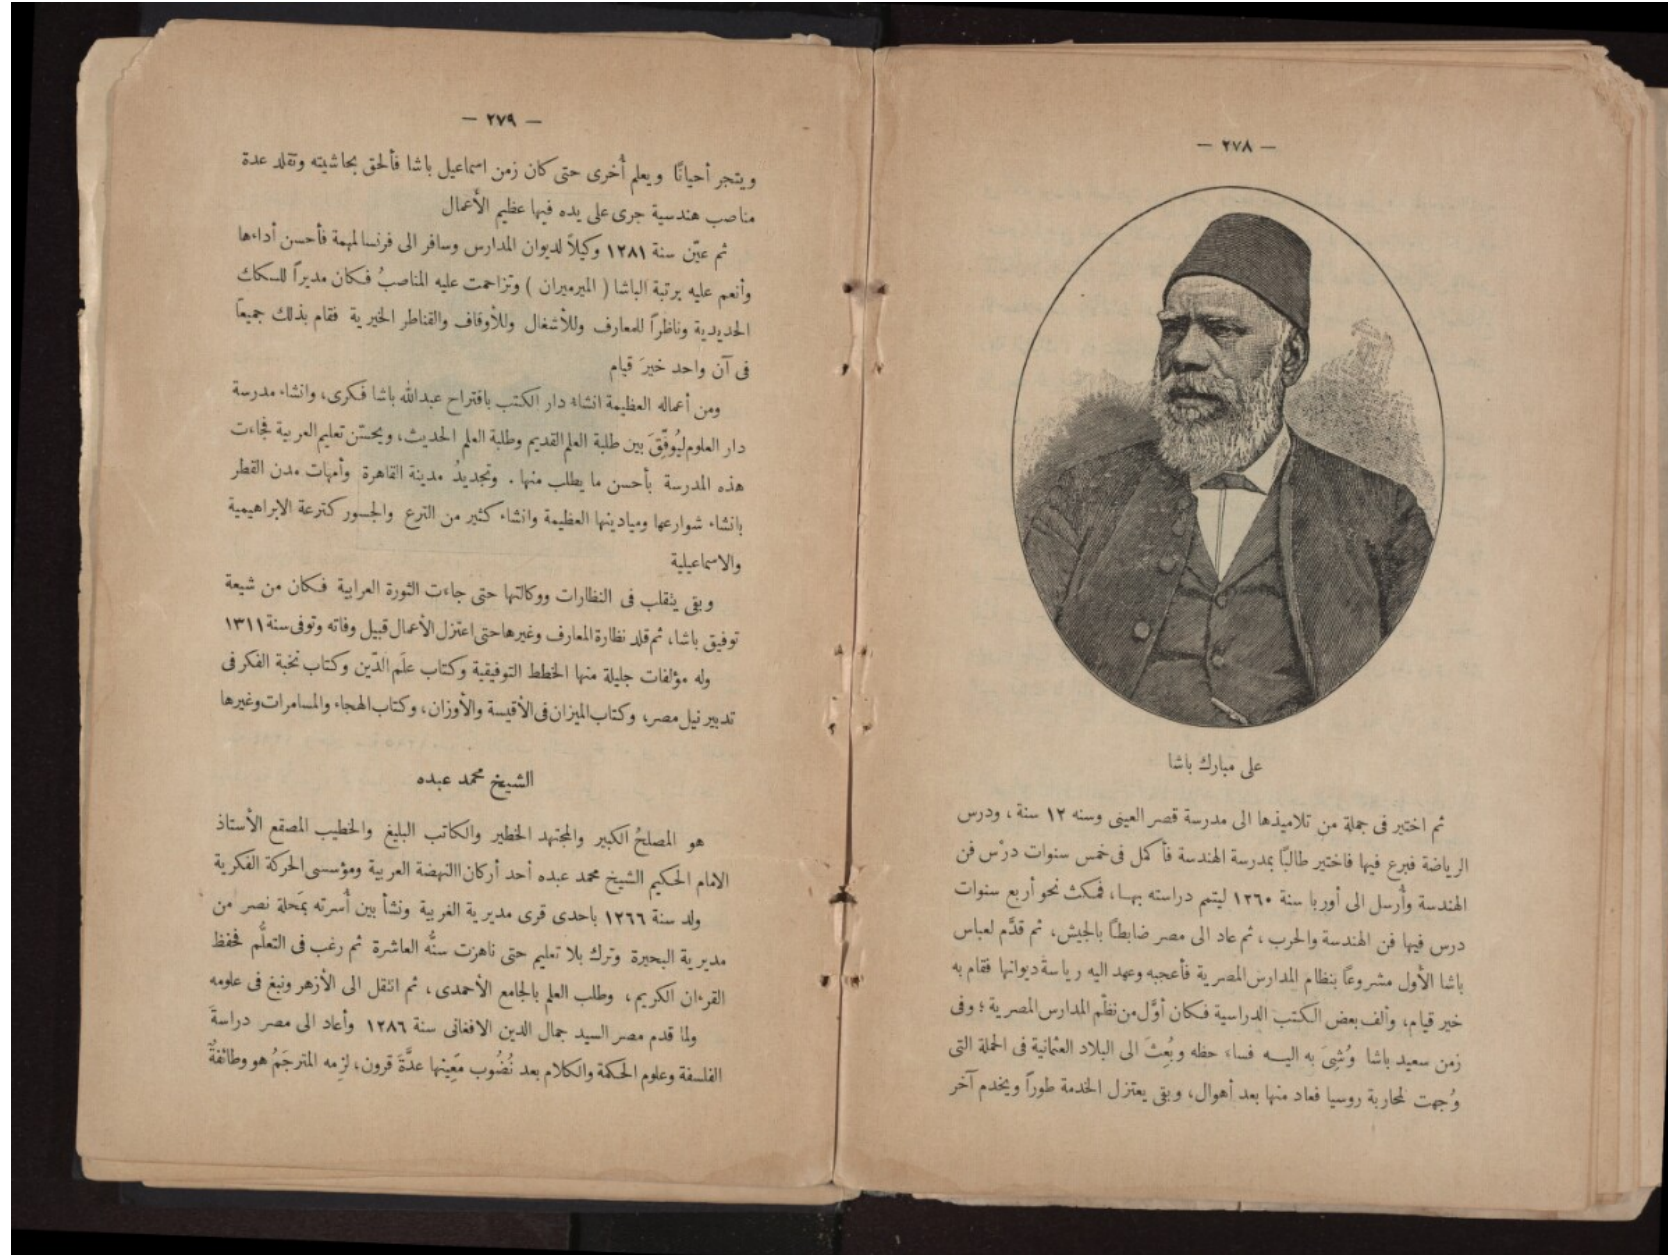 — ٢٧٨ —
على مبارك باشا
ثم اختير فى جملة من تلاميذها الى مدرسة قصر العينى وسنه ١٢ سنة ، ودرس
الرياضة فبرع فيها فاختير طالبًا بمدرسة الهندسة فأكمل فى خمس سنوات درْس فن
الهندسة وأُرسل الى أوربا سنة ١٢٦٠ ليتمم دراسته بهـا، فمكث نحو أربع سنوات
درس فيها فن الهندسة والحرب ، ثم عاد الى مصر ضابطًا بالجيش، ثم قدَّم لعباس
باشا الأول مشروعًا بنظام المدارس المصرية فأعجبه وعهد اليه رياسة ديوانها فقام به
خير قيام، وألف بعض الكتب الدراسية فكان أوَّل من نظّم المدارس المصرية ؛ وفى
زمن سعيد باشا وُشِىَ به اليـــه فساء حظه وبُعِثَ الى البلاد العثمانية فى الحملة التى
وُجهت لمحاربة روسيا فعاد منها بعد أهوال، وبقى يعتزل الخدمة طوراً ويخدم آخر
— ٢٧٩ —
ويتجر أحيانًا ويعلم أُخرى حتى كان زمن اسماعيل باشا فألحق بحاشيته وتقلد عدة
مناصب هندسية جرى على يده فيها عظيم الأعمال
ثم عيّن سنة ١٢٨١ وكيلاً لديوان المدارس وسافر الى فرنسا لمهمة فأحسن أداءها
وأنعم عليه برتبة الباشا ( الميرميران ) وتزاحمت عليه المناصبُ فكان مديراً للسكك
الحديدية وناظراً للمعارف وللأشغال وللأوقاف والقناطر الخيرية فقام بذلك جميعًا
فى آن واحد خيرَ قيام
ومن أعماله العظيمة انشاء دار الكتب باقتراح عبدالله باشا فكرى، وانشاء مدرسة
دار العلوم ليُوفِّقَ بين طلبة العلم القديم وطلبة العلم الحديث، ويحسّن تعليم العربية فجاءت
هذه المدرسة بأحسن ما يطلب منها . وتجديدُ مدينة القاهرة وأمهات مدن القطر
بانشاء شوارعها وميادينها العظيمة وانشاء كثير من الترع والجسور كترعة الابراهيمية
والاسماعيلية
وبقى يتقلب فى النظارات ووكالتها حتى جاءت الثورة العرابية فكان من شيعة
توفيق باشا، ثم قلد نظارة المعارف وغيرها حتى اعتزل الأعمال قبيل وفاته وتوفى سنة ١٣١١
وله مؤلفات جليلة منها الخطط التوفيقية وكتاب علَم الدّين وكتاب نخبة الفكر فى
تدبير نيل مصر، وكتاب الميزان فى الأقيسة والأوزان، وكتاب الهجاء والمسامرات وغيرها
الشيخ محمد عبده
هو المصلحُ الكبير والمجتهد الخطير والكاتب البليغ والخطيب المصقع الأستاذ
الامام الحكيم الشيخ محمد عبده أحد أركان االنهضة العربية ومؤسسى الحركة الفكرية
ولد سنة ١٢٦٦ باحدى قرى مديرية الغربية ونشأ بين أُسرته بمَحلة نصر من
مديرية البحيرة وترك بلا تعليم حتى ناهزت سنُّه العاشرة ثم رغب فى التعلُّم فحفظ
القرءان الكريم، وطلب العلم بالجامع الأحمدى، ثم انتقل الى الأزهر ونبغ فى علومه
ولما قدم مصر السيد جمال الدين الافغانى سنة ١٢٨٦ وأعاد الى مصر دراسةَ
الفلسفة وعلوم الحكمة والكلام بعد نُضُوب مَعِينها عدَّةَ قرون، لزمه المترجَمُ هو وطائفةٌ